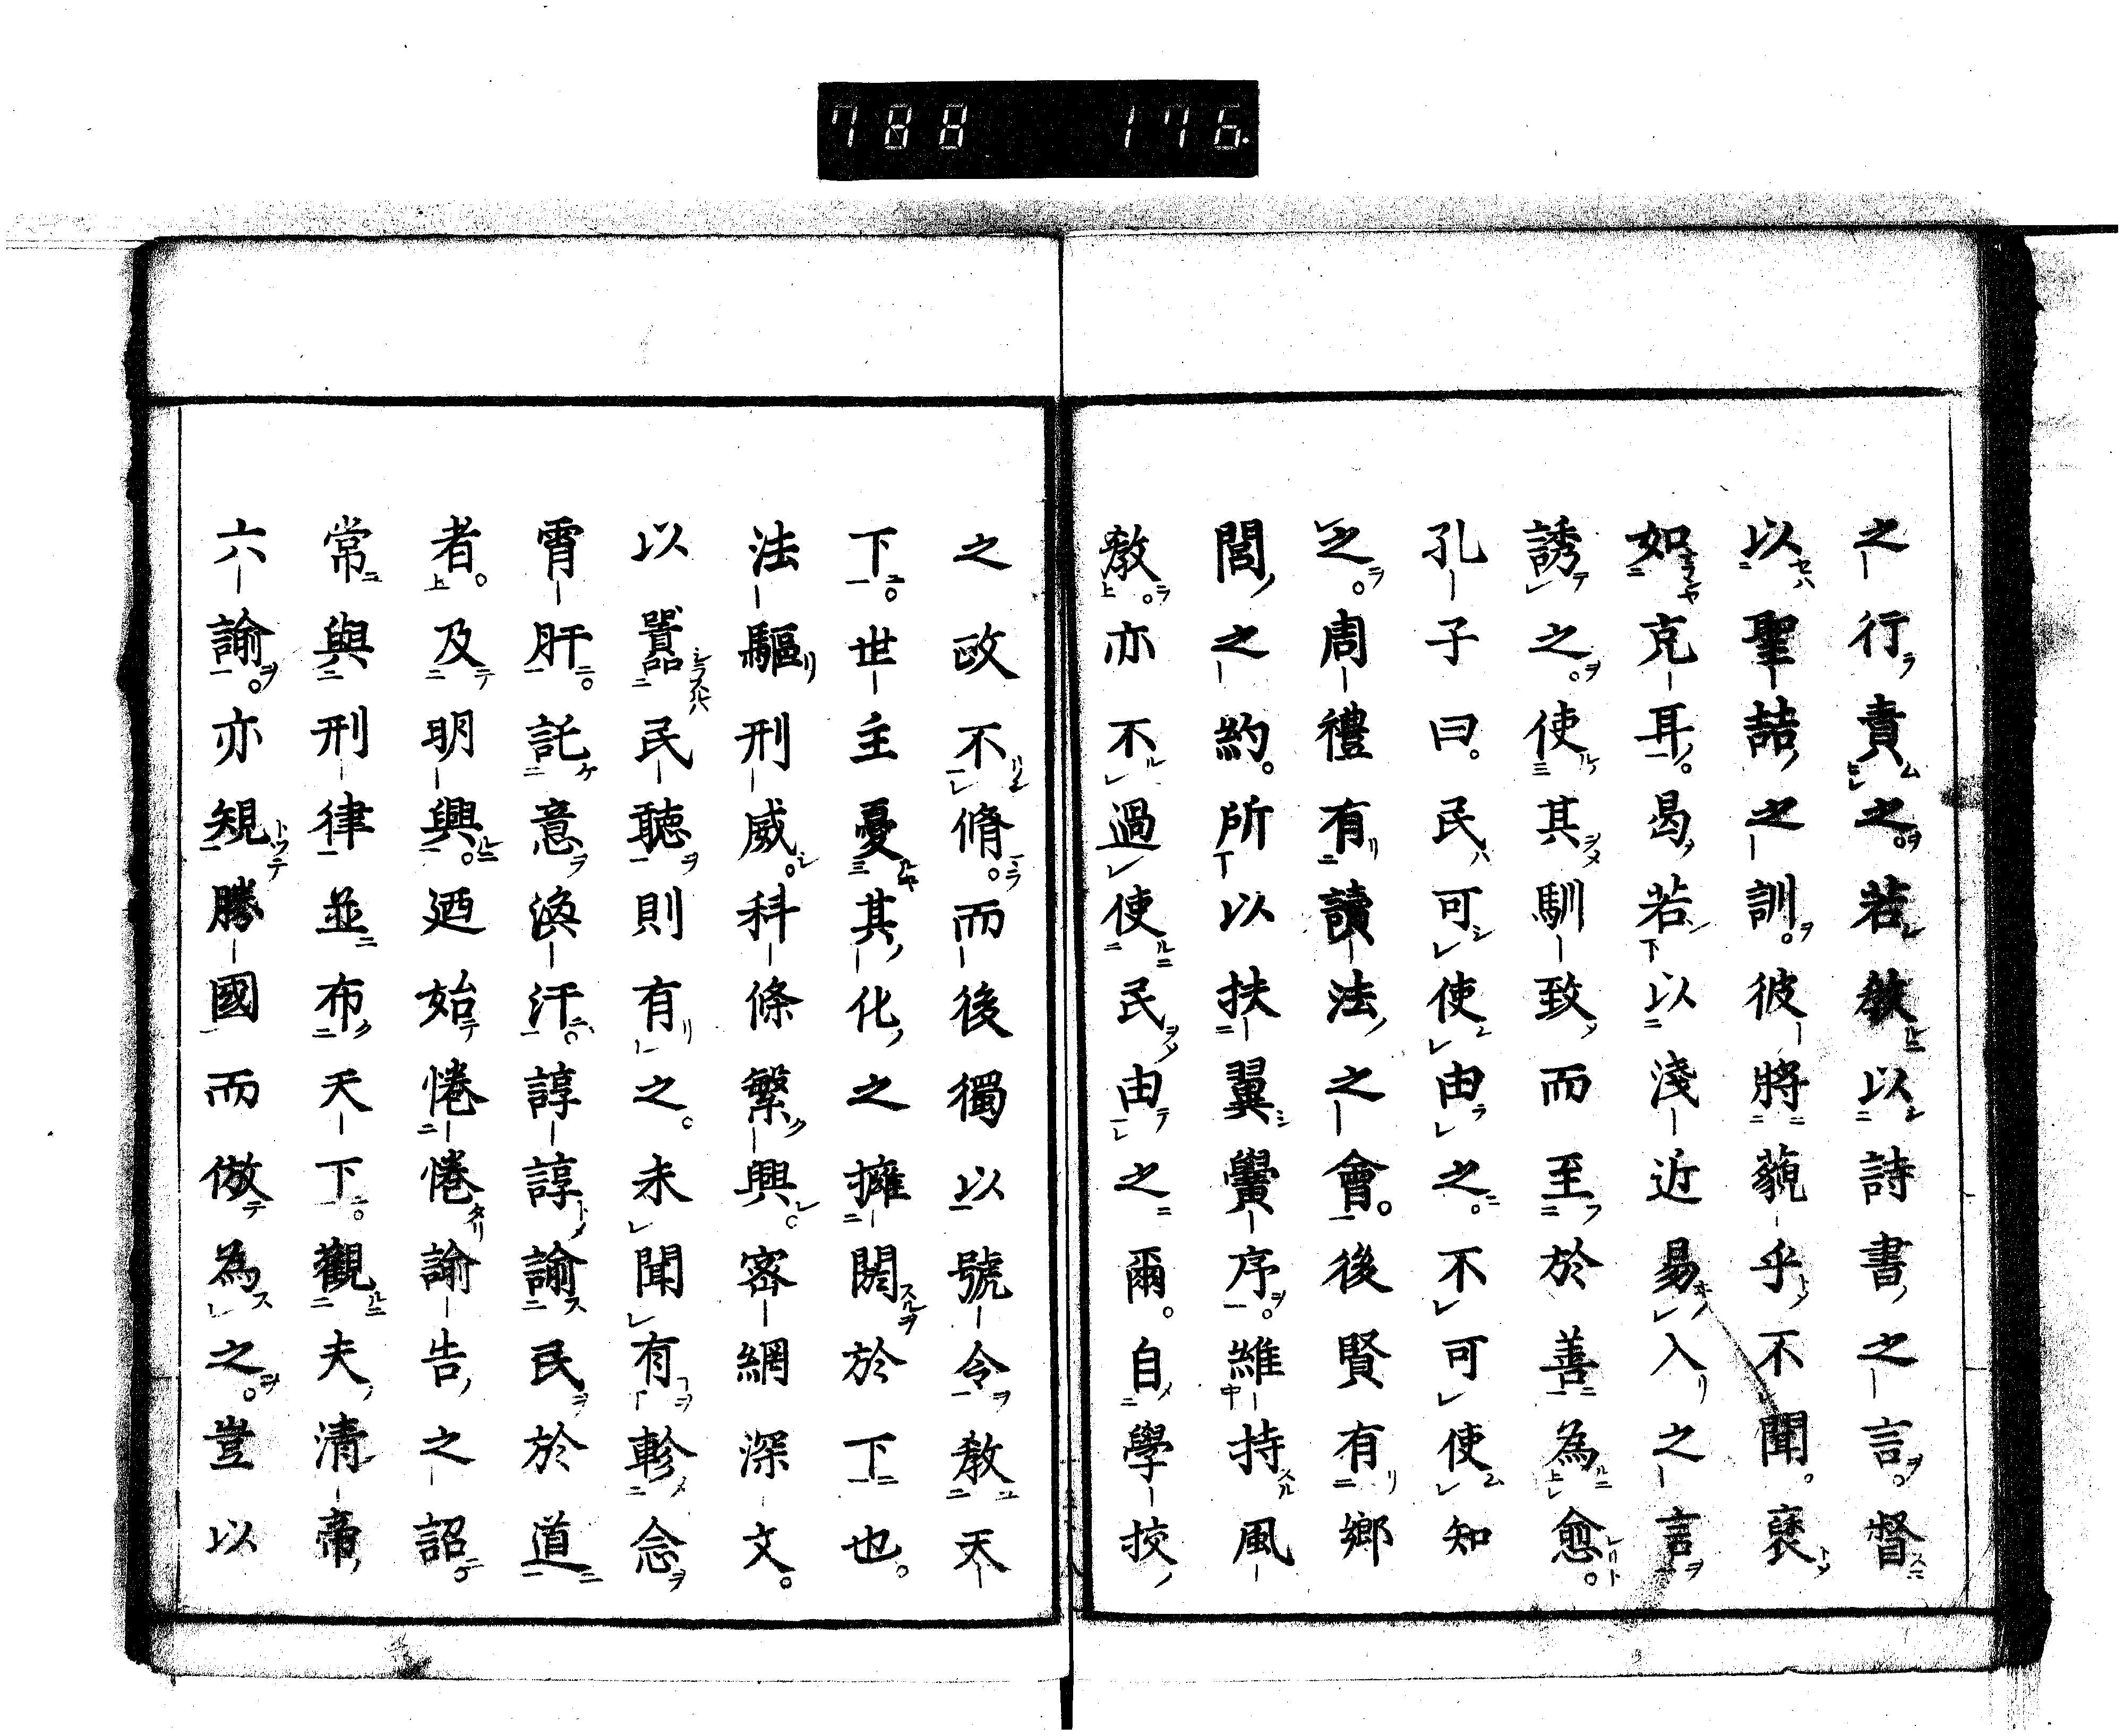 788 176.
之行責之若教以詩書之言督
以聖喆之訓彼將藐乎不聞褎
如充耳曷若以淺近易入之言
誘之使其馴致而至於善為愈
孔子曰民可使由之不可使知
之周禮有讀法之會後賢有鄉
閭之約所以扶翼黌序維持風
教亦不過使民由之爾自學挍
之政不脩而後獨以號令教天
下世主憂其化之擁閼於下也
法驅刑威科條繁興密網深文
以囂民聽則有之未聞有軫念
宵旰託意渙汗諄諄諭民於道
者及明興廼始惓惓諭告之詔
常與刑律並布天下觀夫清帝
六諭亦規勝國而倣為之豈以